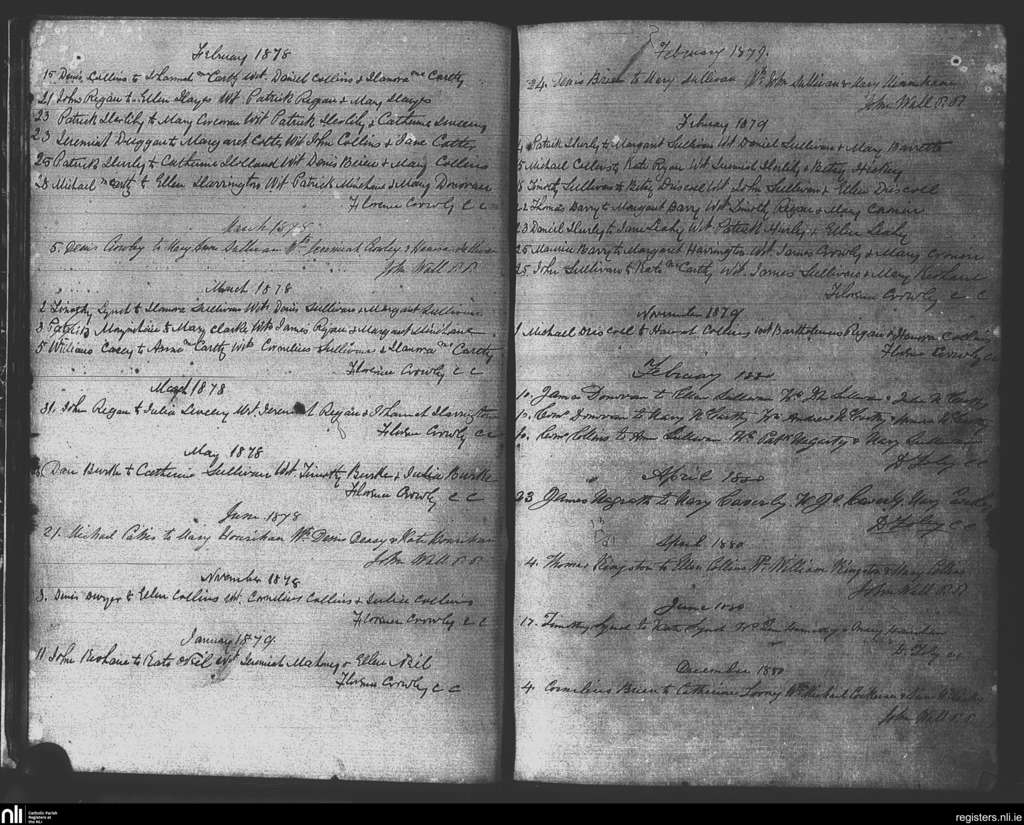 February 1878
15 Denis Collins to Johannah McCarthy Wit. Daniel Collins & Hanora McCarthy
21 John Regan to Ellen Hayes Wit Patrick Regan & Mary Hayes
23 Patrick Herlihy to Mary Corcoran Wit Patrick Herlihy & Catherine Sweeney
23 Jeremiah Duggan to Margaret Cotter Wit John Collins & Jane Cotter
25 Patrick Hurley to Catherine Holland Wit Denis Brien & Mary Collins
28 Michael McCarthy to Ellen Harrington Wit Patrick Minehane & Mary Donovan
Florence Crowly C C
March 1878
5. Denis Crowley to Mary Anne Sullivan Wit Jeremiah Crowley &
John Wall P.P.
March 1878
2 Timothy Lynch to Hanora Sullivan Wit. Denis Sullivan & Margaret Sullivan
3 Patrick to Mary Clarke Wit James Ryan & Margaret Minehane
5 William Casey to Anne McCarthy Wit Cornelius Sullivan & Hanora McCarthy
Florence Crowly C C
March 1878
31. John Regan to Julia Wit. Jeremiah Regan & Johannah Harrington
Florence Crowly C C
May 1878
Dan Burke to Catherine Sullivan Wit. Timothy Burke & Julia Burke
Florence Crowly C C
June 1878
21. Michael to Mary Hourihan Wt. Denis Casey & Kate Hourihan
John Wall P.P.
November 1878
3. Denis Dwyer to Ellen Collins Wit. Cornelius Collins & Julia Collins
Florence Crowly C C
January 1879
11 John Keohane to Kate Neil Wit Jeremiah Mahony & Ellen Neil
Florence Crowly C C
February 1879.
24. Denis Brien to Mary Sullivan Wt. John Sullivan & Mary
John Wall P.P.
February 1879
Patrick Hurley to Margaret Sullivan Wit Daniel Sullivan & Mary Barrett
5 Michael to Kate Ryan Wit Jeremiah Herlihy & Betsy Hickey
8 Timothy Sullivan to Betsy Driscoll Wit John Sullivan & Ellen Driscoll
22 Thomas Barry to Margaret Barry Wit Timothy Regan & Mary Connor
23 Daniel Hurley to Jane Leahy Wit Patrick Hurley & Ellen Leahy
25 Maurice Barry to Margaret Harrington Wit James Crowly & Mary Cronin
25 John Sullivan to Kate McCarthy Wit James Sullivan & Mary Keohane
Florence Crowly C C
November 1879
1 Michael Driscoll to Hannah Collins Wit Bartholomew Regan & Hanora Collins
Florence Crowly C C
February 1880
10. James Donovan to Ellen Sullivan Ws. Sullivan & Julia McCarthy
10. Corns Donovan to Mary McCarthy Ws Andrew McCarthy & McCarthy
10. Corns Collins to Ann Sullivan Ws Patk Hegarty & Mary Sullivan
D Foley C C
April 1880
23 James to Mary Caverly W. J. C. Caverly Mary
D Foley C C
April 1880
4. Thomas Kingston to Ellen Collins Wt. William Kingston & Mary Collins
John Wall P.P.
June 1880
17. Timothy Lynch to Kate Lynch Ws
D. Foley C C
December 1880
4. Cornelius Brien to Catherine Wt Michael
John Wall P.P.
nli
Catholic Parish
Registers at
the NLI
registers.nli.ie